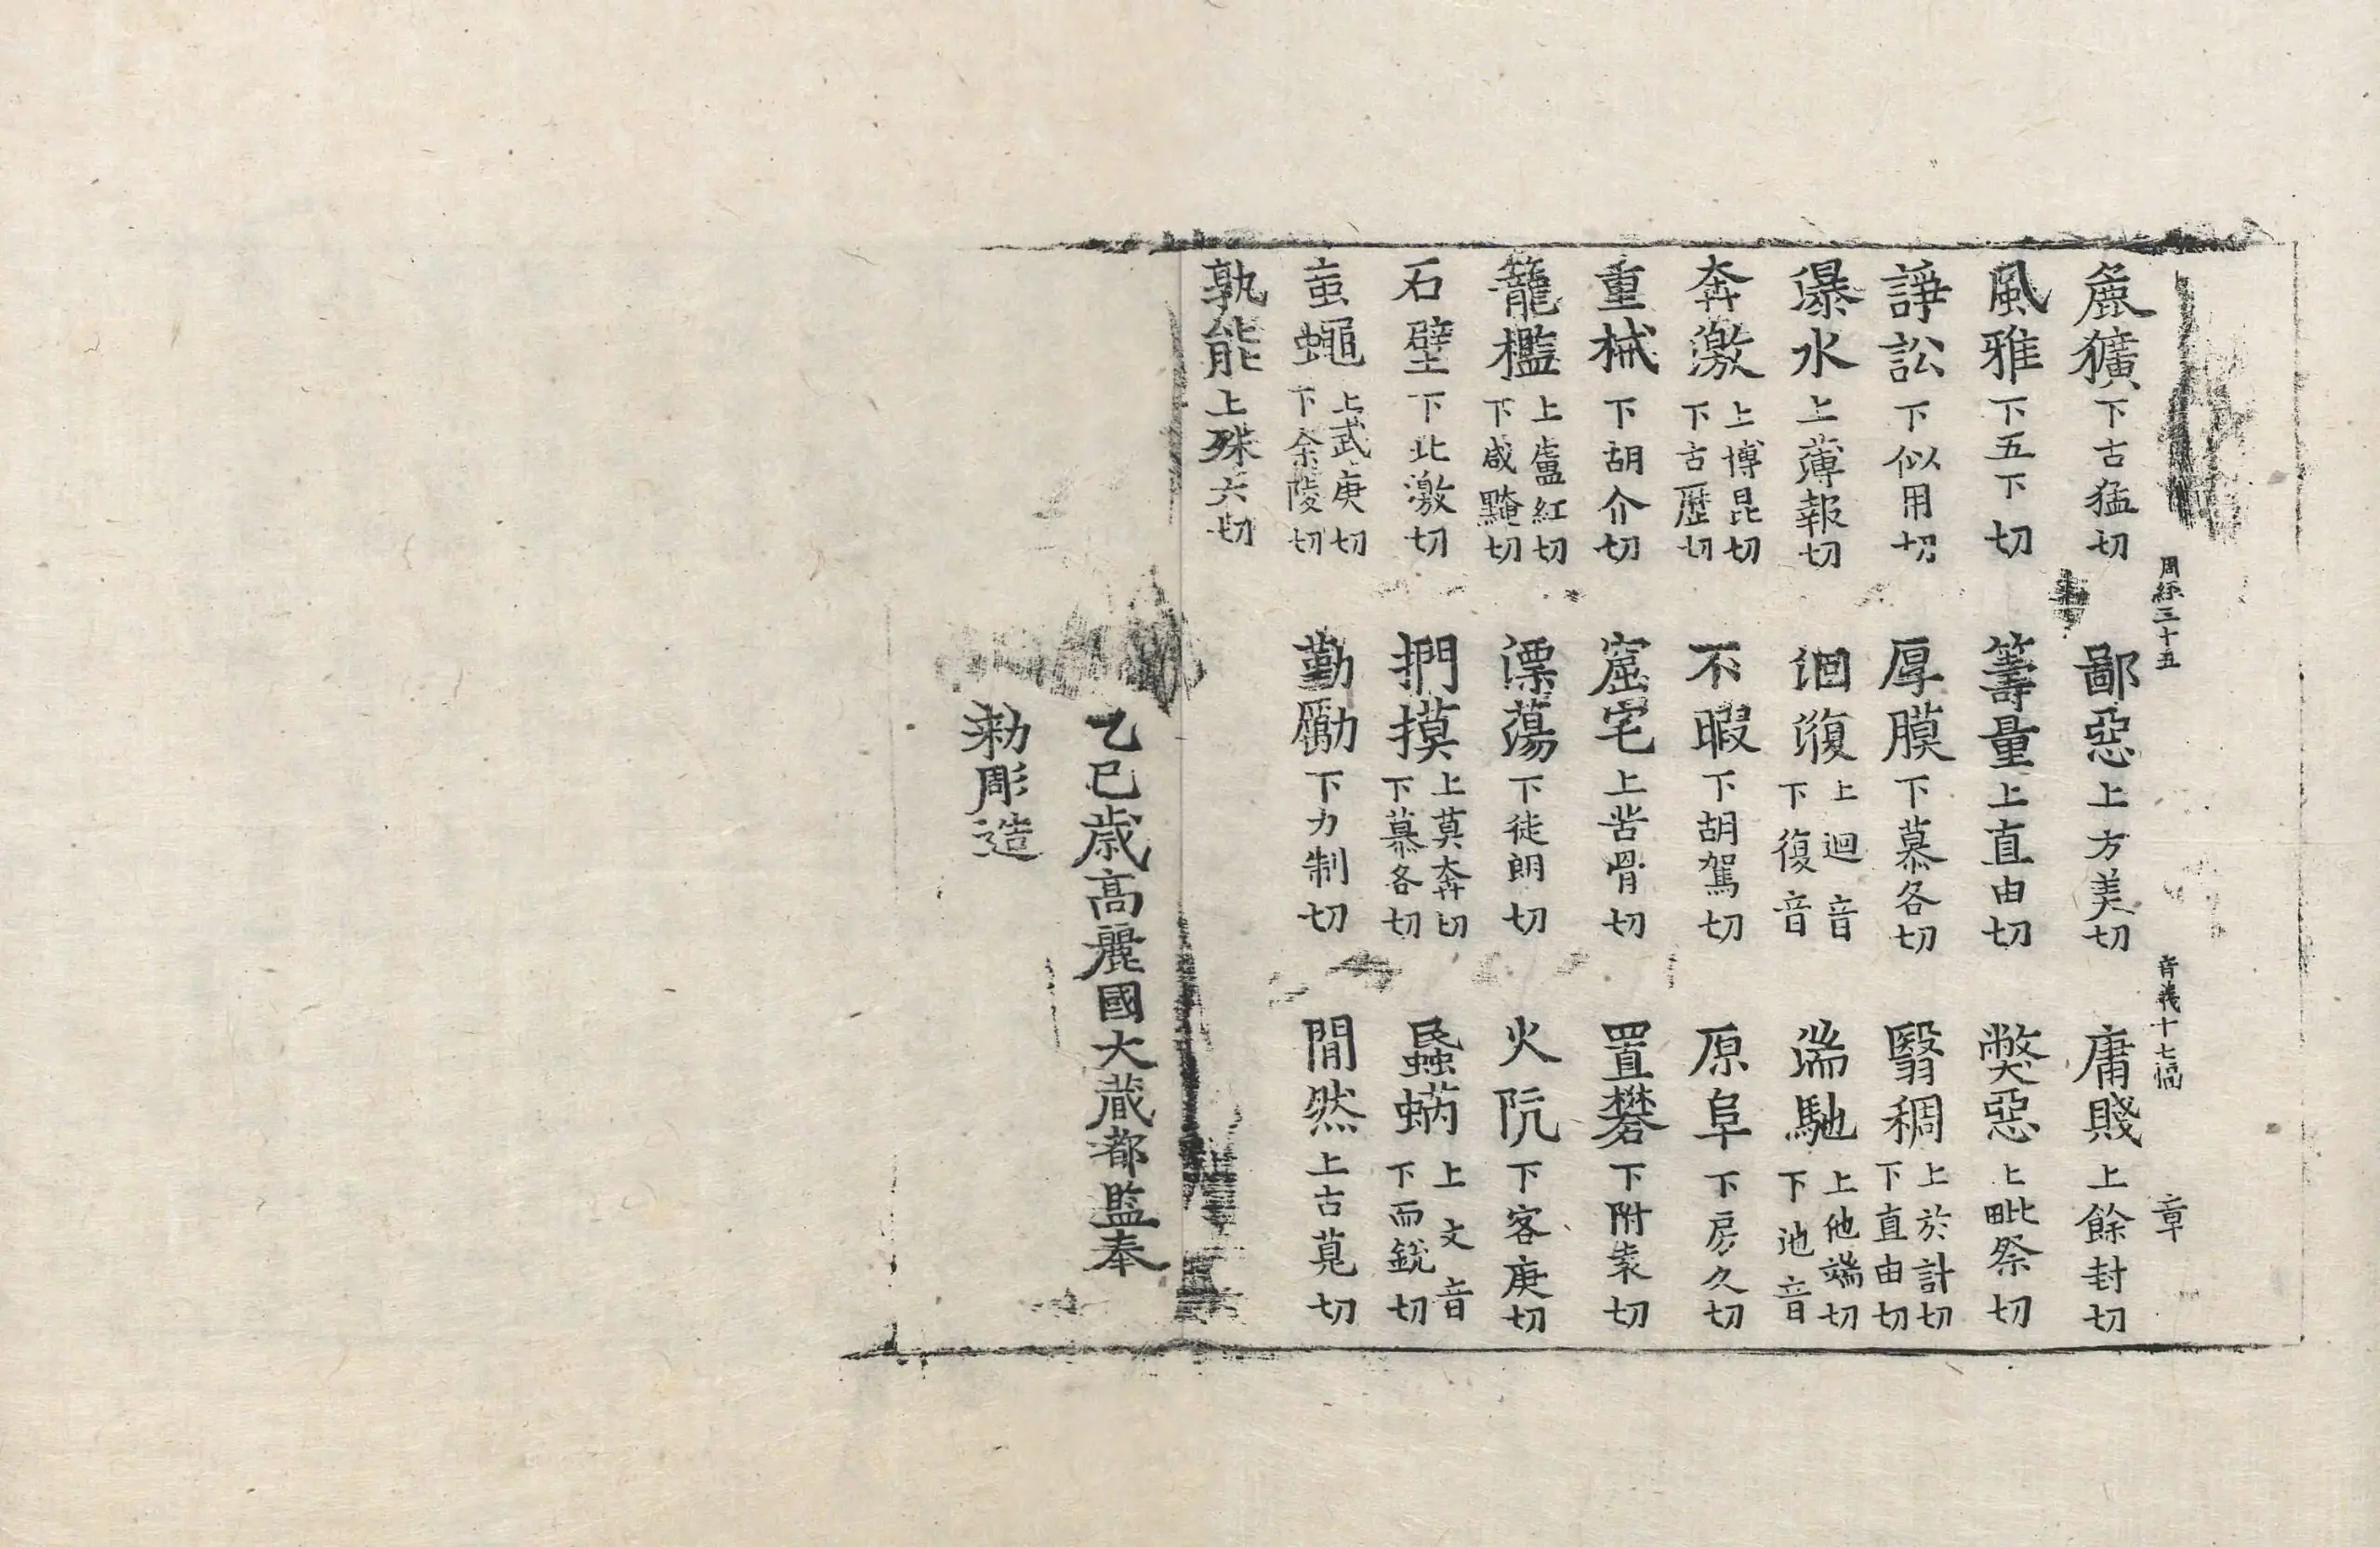 周經三十五 音義十七幅 章
麁獷下古猛切 鄙惡上方美切 庸賤上餘封切
風雅下五下切 籌量上直由切 獘惡上毗祭切
諍訟下似用切 厚膜下慕各切 翳稠上於計切下直由切
瀑水上薄報切 洄澓上迴音下復音 湍馳上他端切下池音
奔激上博昆切下古歷切 不暇下胡駕切 原阜下房久切
重械下胡介切 窟宅上苦骨切 置礬下附袁切
籠檻上盧紅切下咸黤切 漂蕩下徒朗切 火阬下客庚切
石壁下北激切 捫摸上莫奔切下慕各切 蟁蜹上文音下而銳切
䖟蠅上武庚切下余陵切 勤勵下力制切 閒然上古莧切
孰能上殊六切
乙巳歳高麗國大藏都監奉
勑彫造